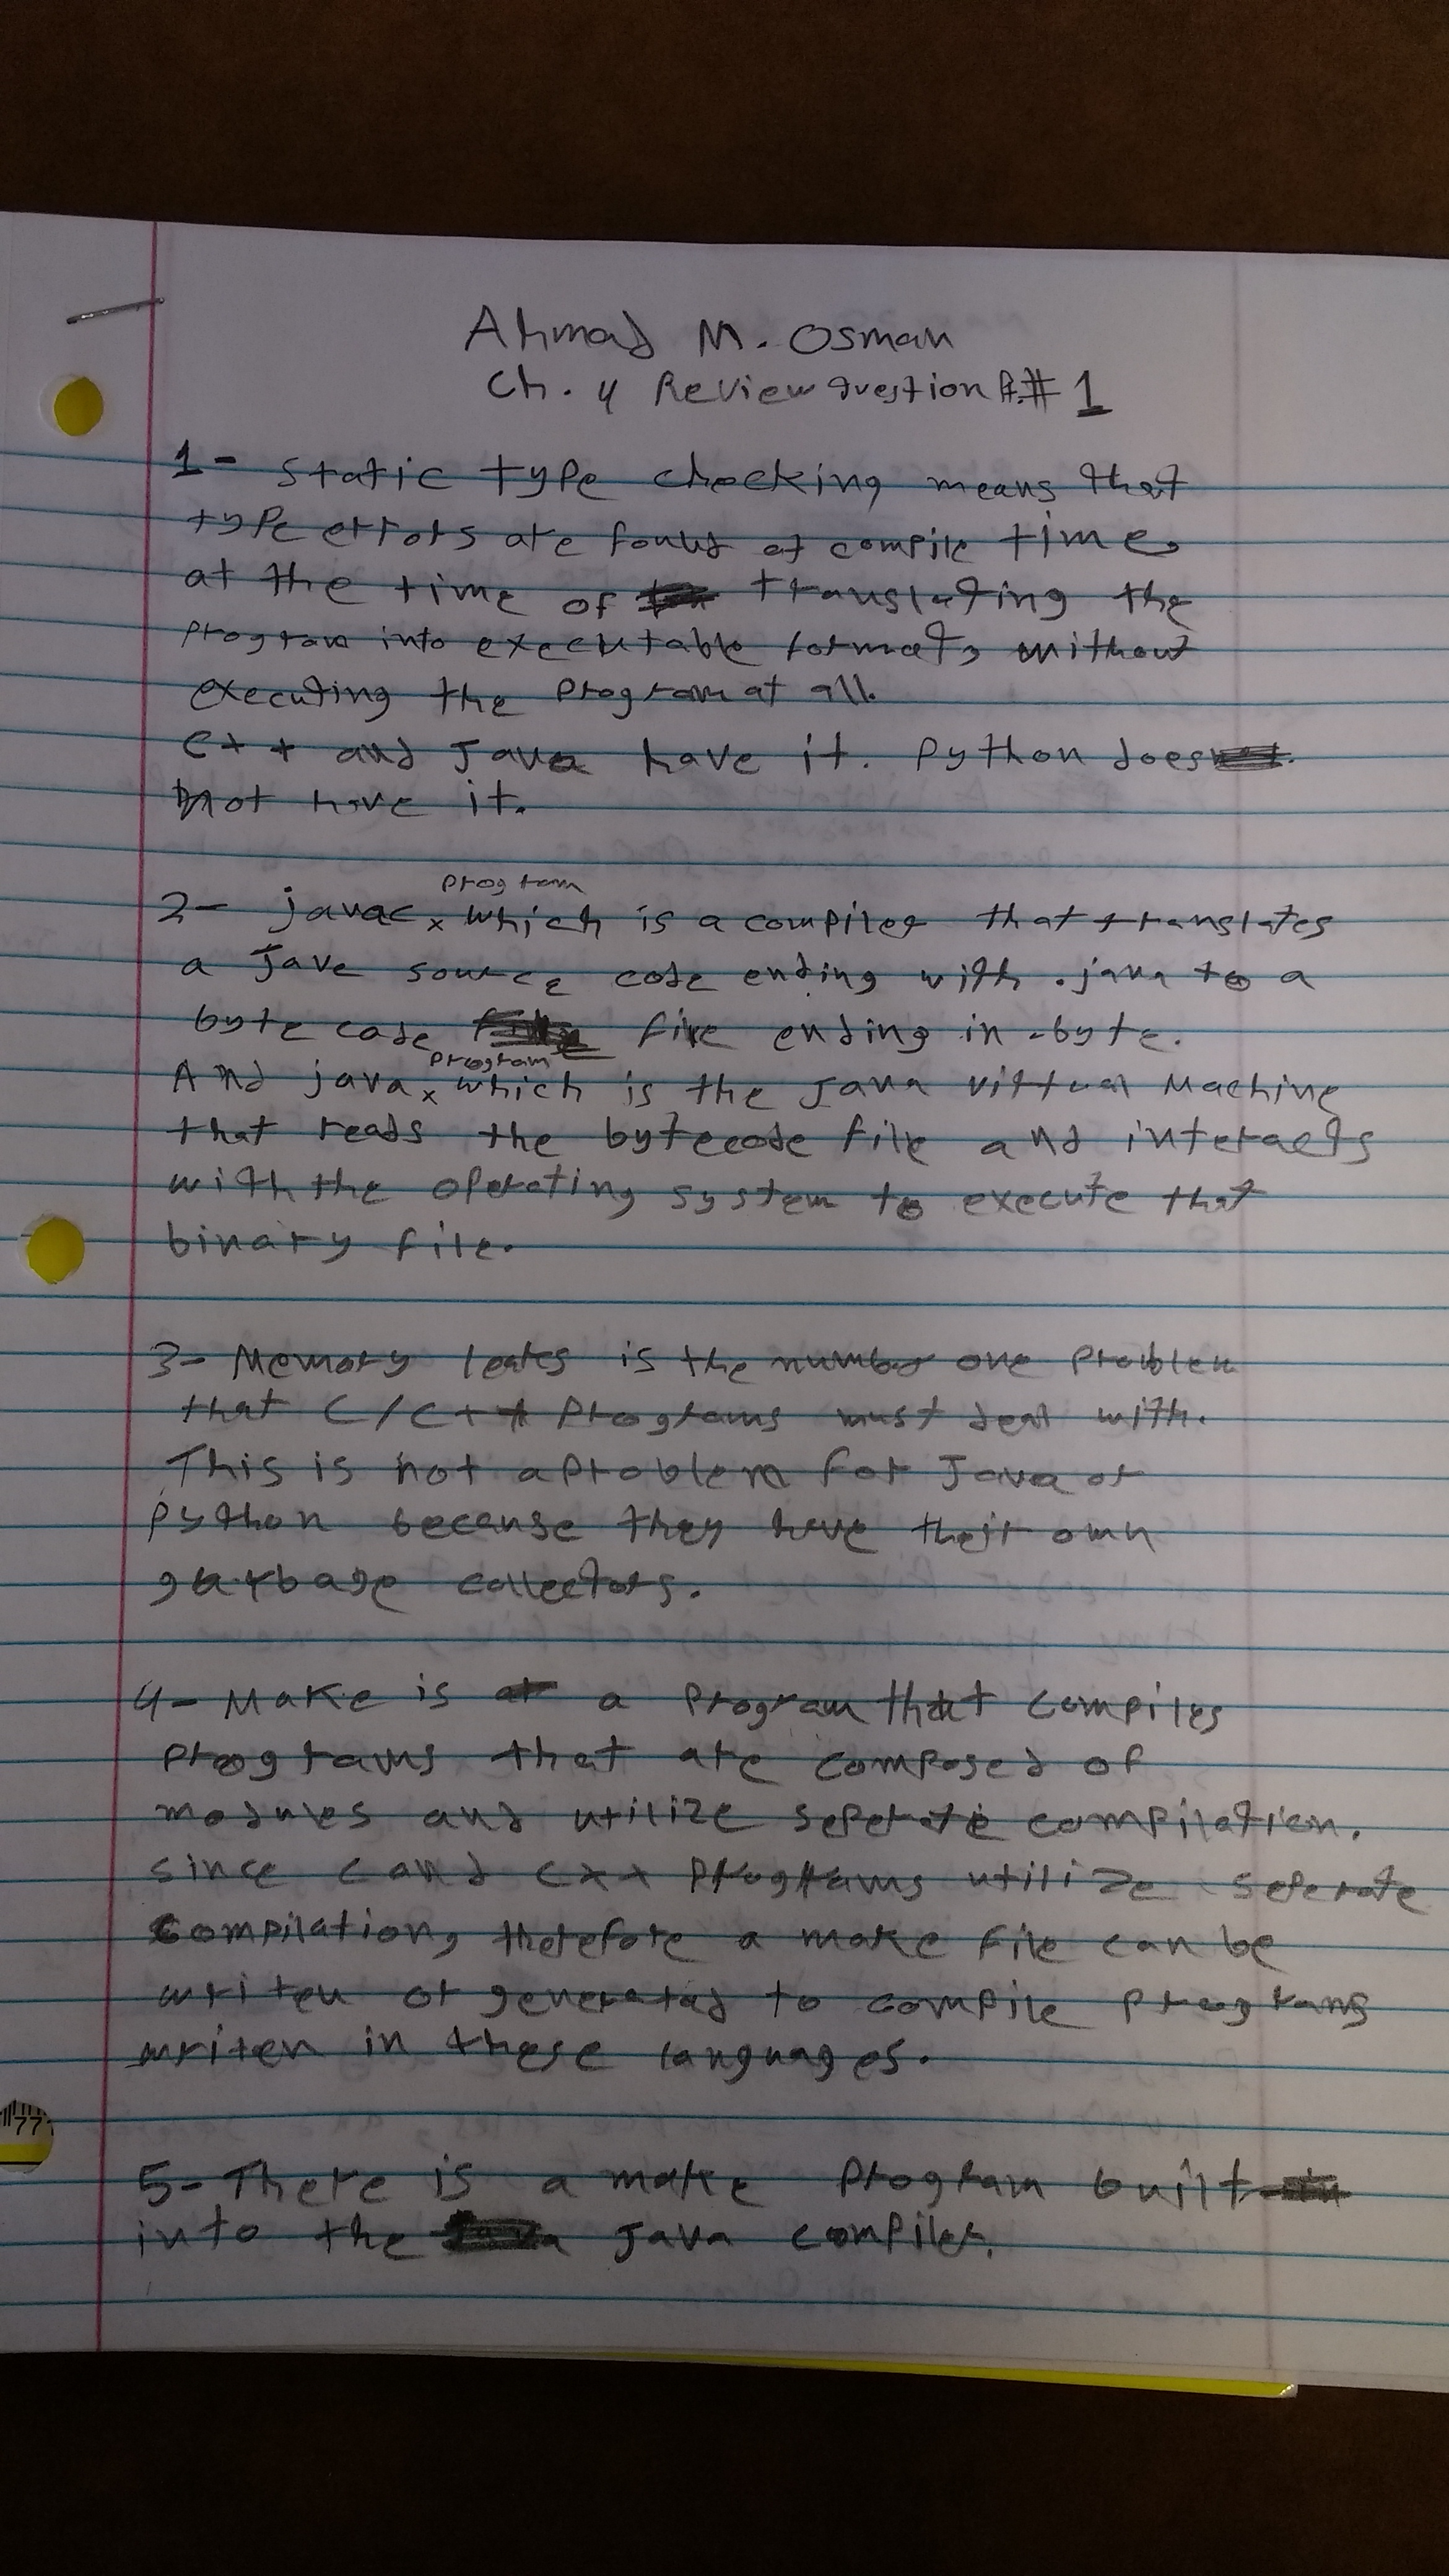 Ahmad M. Osman
Ch. 4 Review question P.# 1
1- static type checking means that
type errors are found at compile time,
at the time of translating the
program into executable format, without
executing the program at all.
C++ and Java have it. Python does
not have it.
program
2- javac x which is a compiler that translates
a Java source code ending with .java to a
byte code file ending in .byte.
program
And java x which is the Java virtual Machine
that reads the bytecode file and interacts
with the operating system to execute that
binary file.
3- Memory leaks is the number one problem
that C/C++ programs must deal with.
This is not a problem for Java or
python because they have their own
garbage collectors.
4- Make is a program that compiles
programs that are composed of
modules and utilize seperate compilation.
since C and C++ programs utilize seperate
compilation, therefore a make file can be
writen or generated to compile programs
writen in these languages.
5- There is a make program built
into the Java compiler.
77